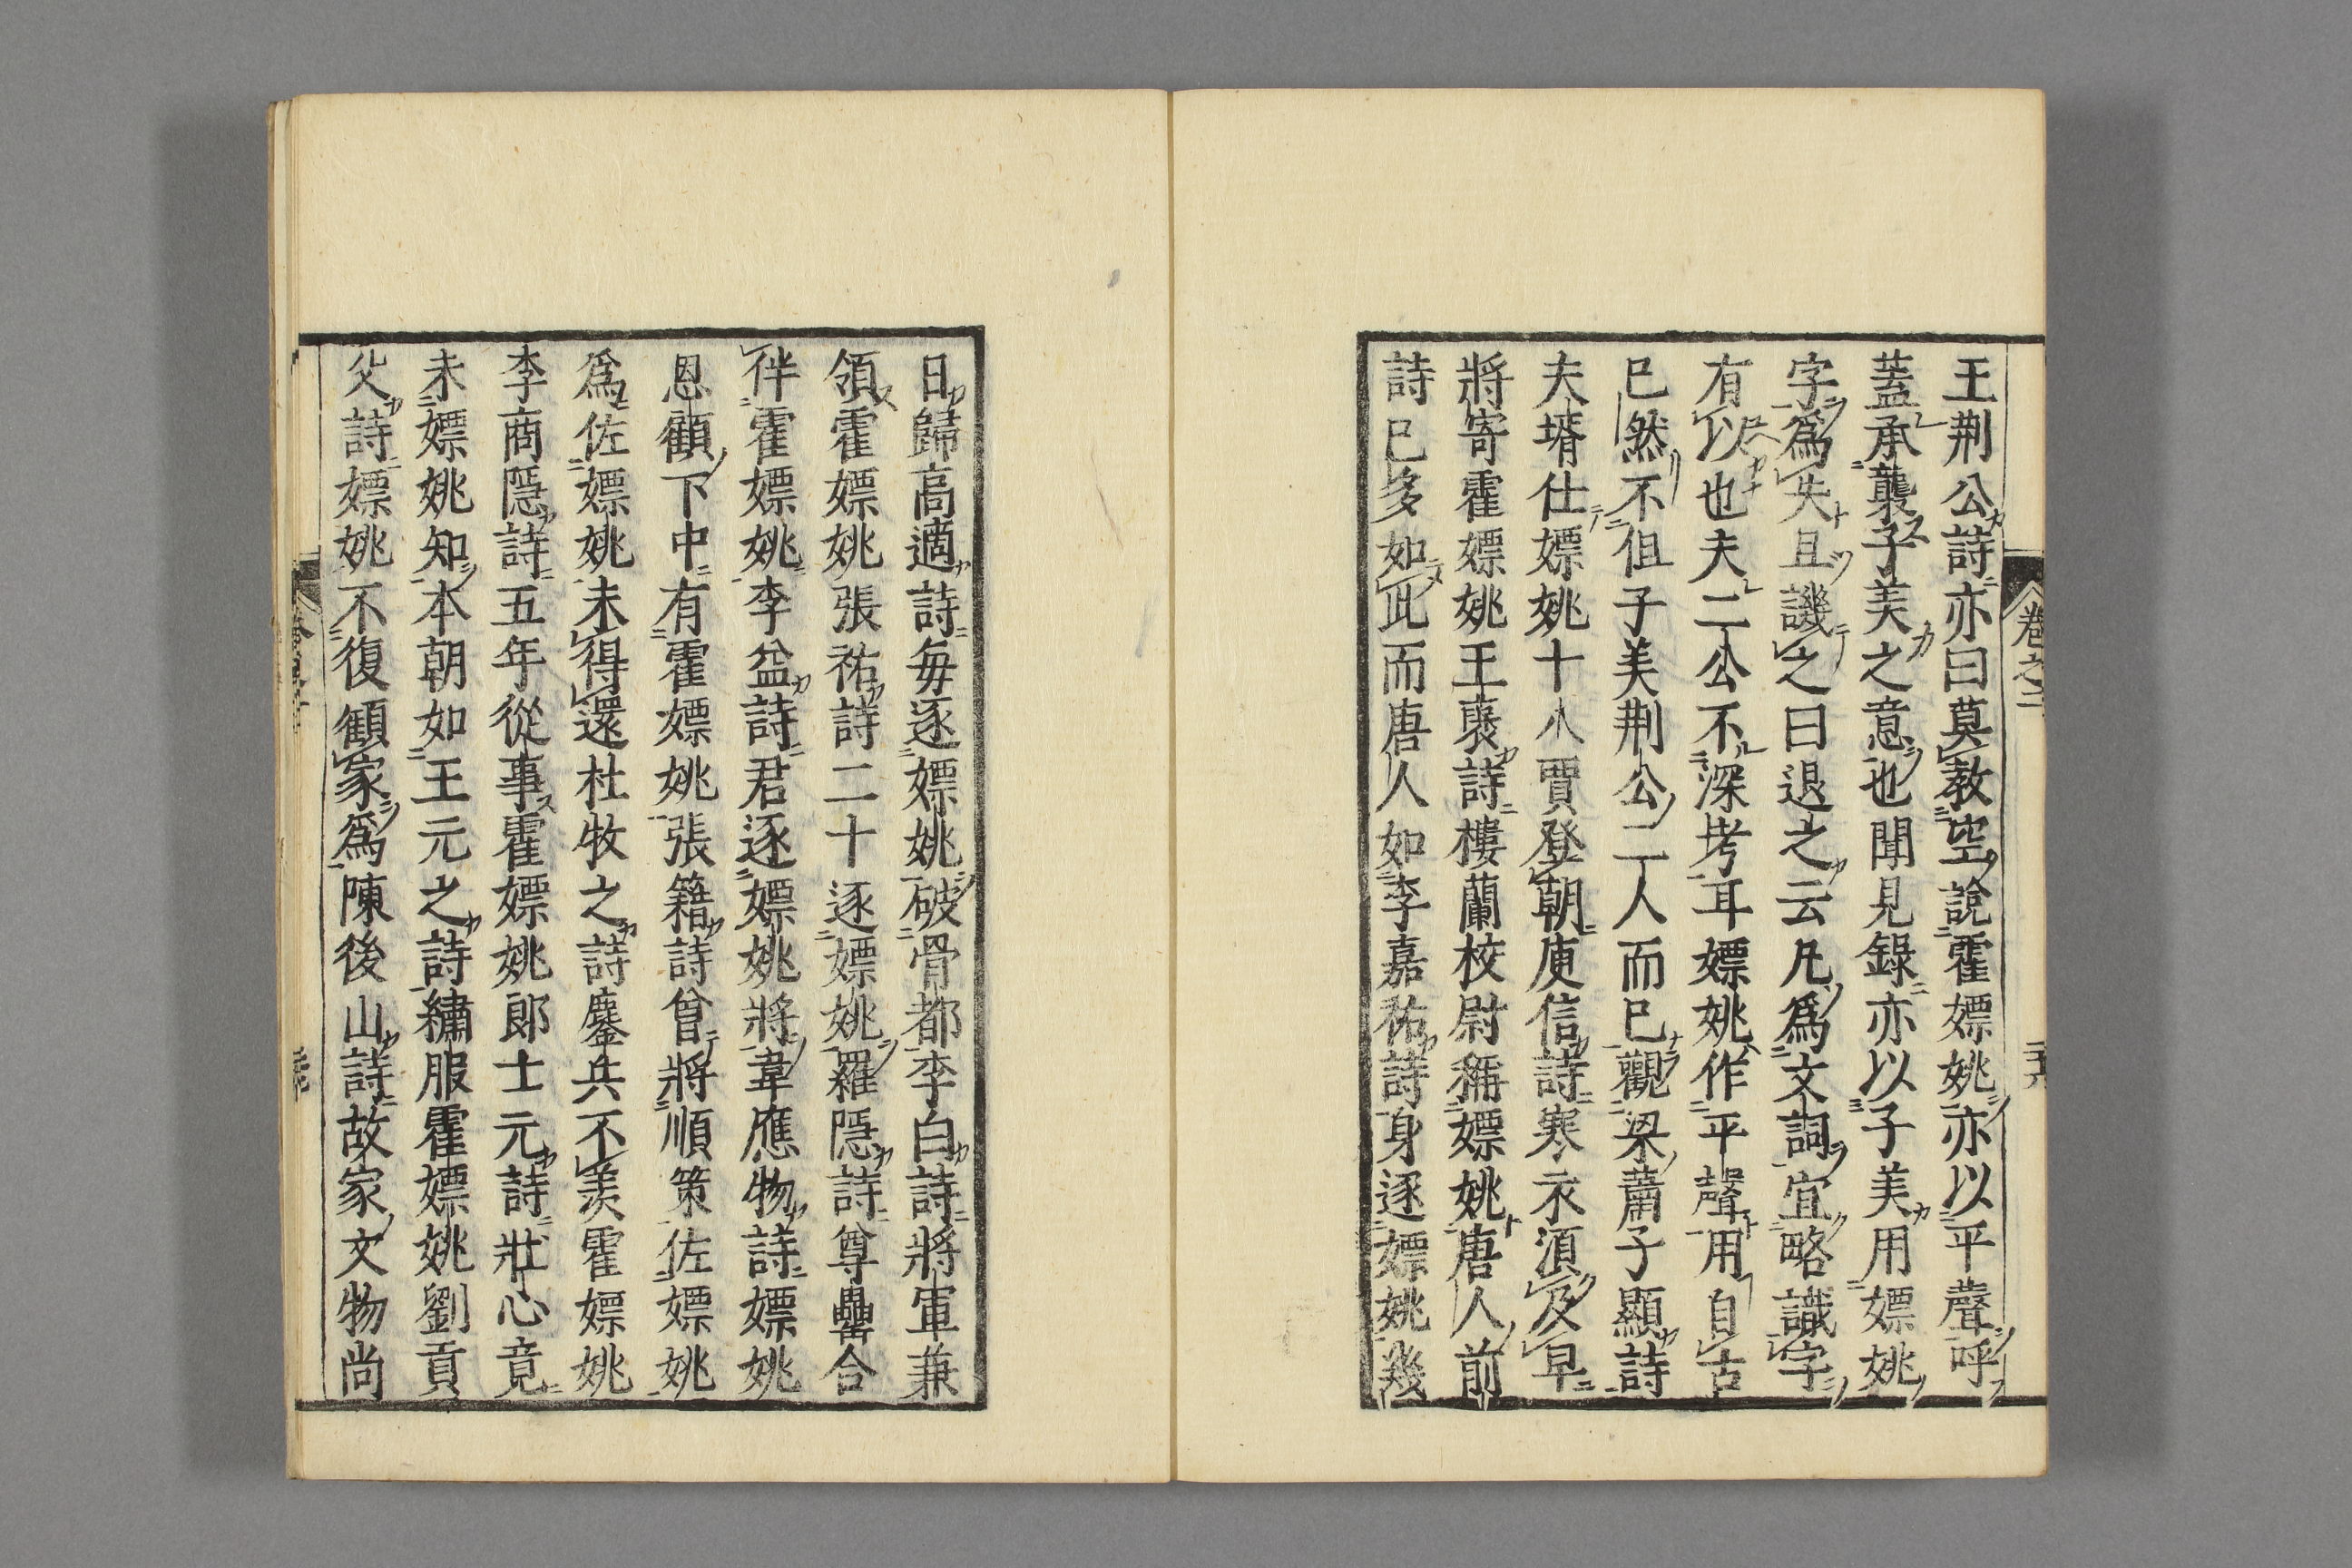 卷之二
王荆公詩亦曰莫教空說霍嫖姚亦以平聲呼
蓋承襲子美之意也聞見錄亦以子美用嫖姚
字爲失且譏之曰退之云凡爲文詞宜略識字
有以也夫二公不深考耳嫖姚作平聲用自古
已然不但子美荆公二人而已觀梁蕭子顯詩
夫壻仕嫖姚十八賈登朝庾信詩寒衣須及早
將寄霍嫖姚王襃詩樓蘭校尉稱嫖姚唐人前
詩已多如此而唐人如李嘉祐詩身逐嫖姚幾
日歸高適詩每逐嫖姚破骨都李白詩將軍兼
領霍嫖姚張祐詩二十逐嫖姚羅隱詩尊罍合
伴霍嫖姚李益詩君逐嫖姚將韋應物詩嫖姚
恩顧下中有霍嫖姚張籍詩曾將順策佐嫖姚
爲佐嫖姚未得還杜牧之詩鏖兵不羨霍嫖姚
李商隱詩五年從事霍嫖姚郎士元詩壯心竟
未嫖姚知本朝如王元之詩繡服霍嫖姚劉貢
父詩嫖姚不復顧家爲陳後山詩故家文物尚